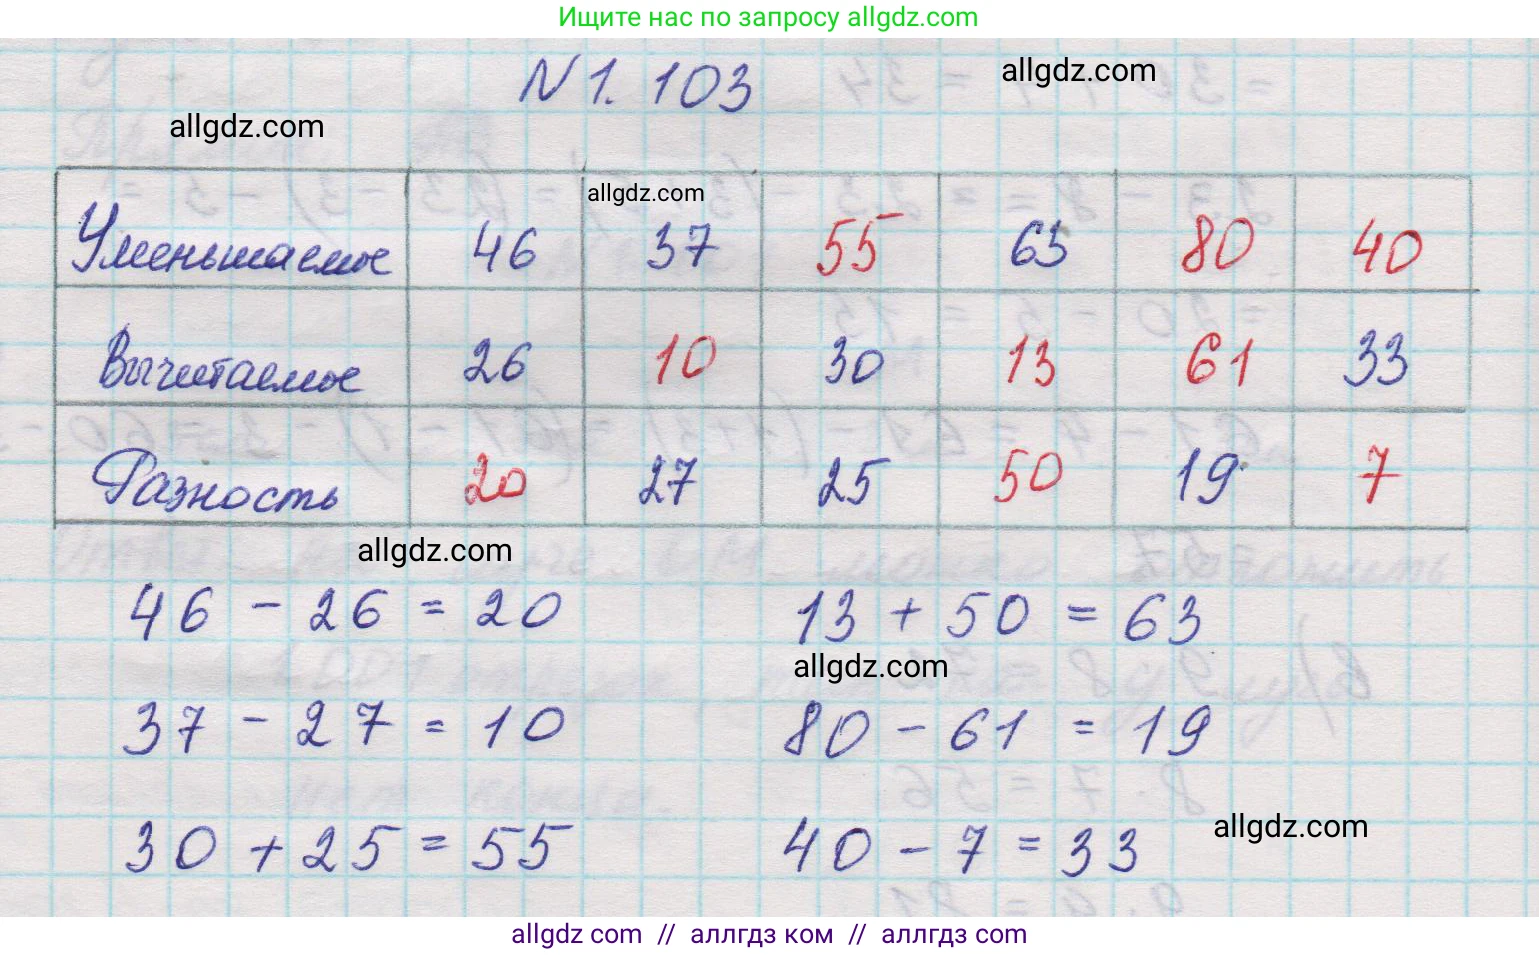 Ищите нас по запросу allgdz.com
N 1. 103
allgdz.com
allgdz.com
allgdz.com
Уменьшаемое 46 37 55 63 80 40
Вычитаемое 26 10 30 13 61 33
Разность 20 27 25 50 19 7
allgdz.com
46 - 26 = 20 13 + 50 = 63
allgdz.com
37 - 27 = 10 80 - 61 = 19
allgdz.com
30 + 25 = 55 40 - 7 = 33
allgdz com // аллгдз ком // аллгдз com